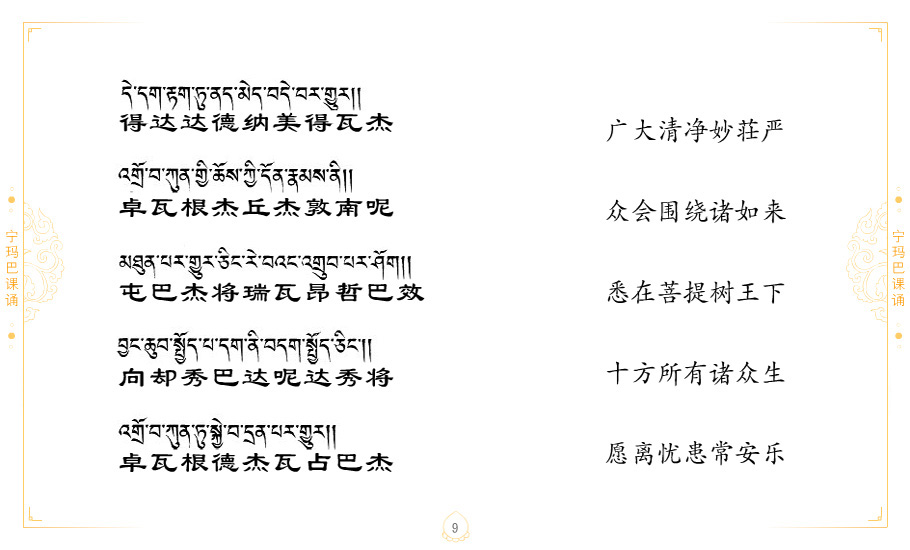 དེ་དག་རྟག་ཏུ་ནད་མེད་བདེ་བར་གྱུར།།
得达达德纳美得瓦杰
འགྲོ་བ་ཀུན་གྱི་ཆོས་ཀྱི་དོན་རྣམས་ནི།།
卓瓦根杰丘杰敦南呢
མཐུན་པར་གྱུར་ཅིང་རེ་བའང་འགྲུབ་པར་ཤོག།
屯巴杰将瑞瓦昂哲巴效
བྱང་ཆུབ་སྤྱོད་པ་དག་ནི་བདག་སྤྱོད་ཅིང་།།
向却秀巴达呢达秀将
འགྲོ་བ་ཀུན་ཏུ་སྐྱེ་བ་དྲན་པར་གྱུར།།
卓瓦根德杰瓦占巴杰
广大清净妙莊严
众会围绕诸如来
悉在菩提树王下
十方所有诸众生
愿离忧患常安乐
宁玛巴课诵
宁玛巴课诵
9